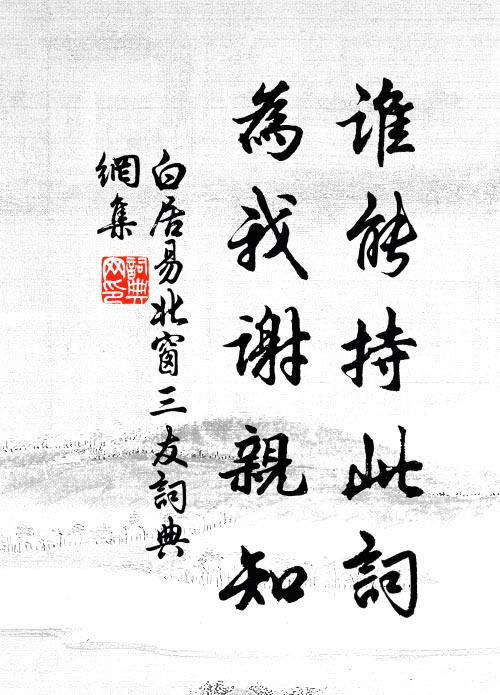 谁能持此詞
為我謝親知
白居易北窗三友詞典
網集
詞典
网印